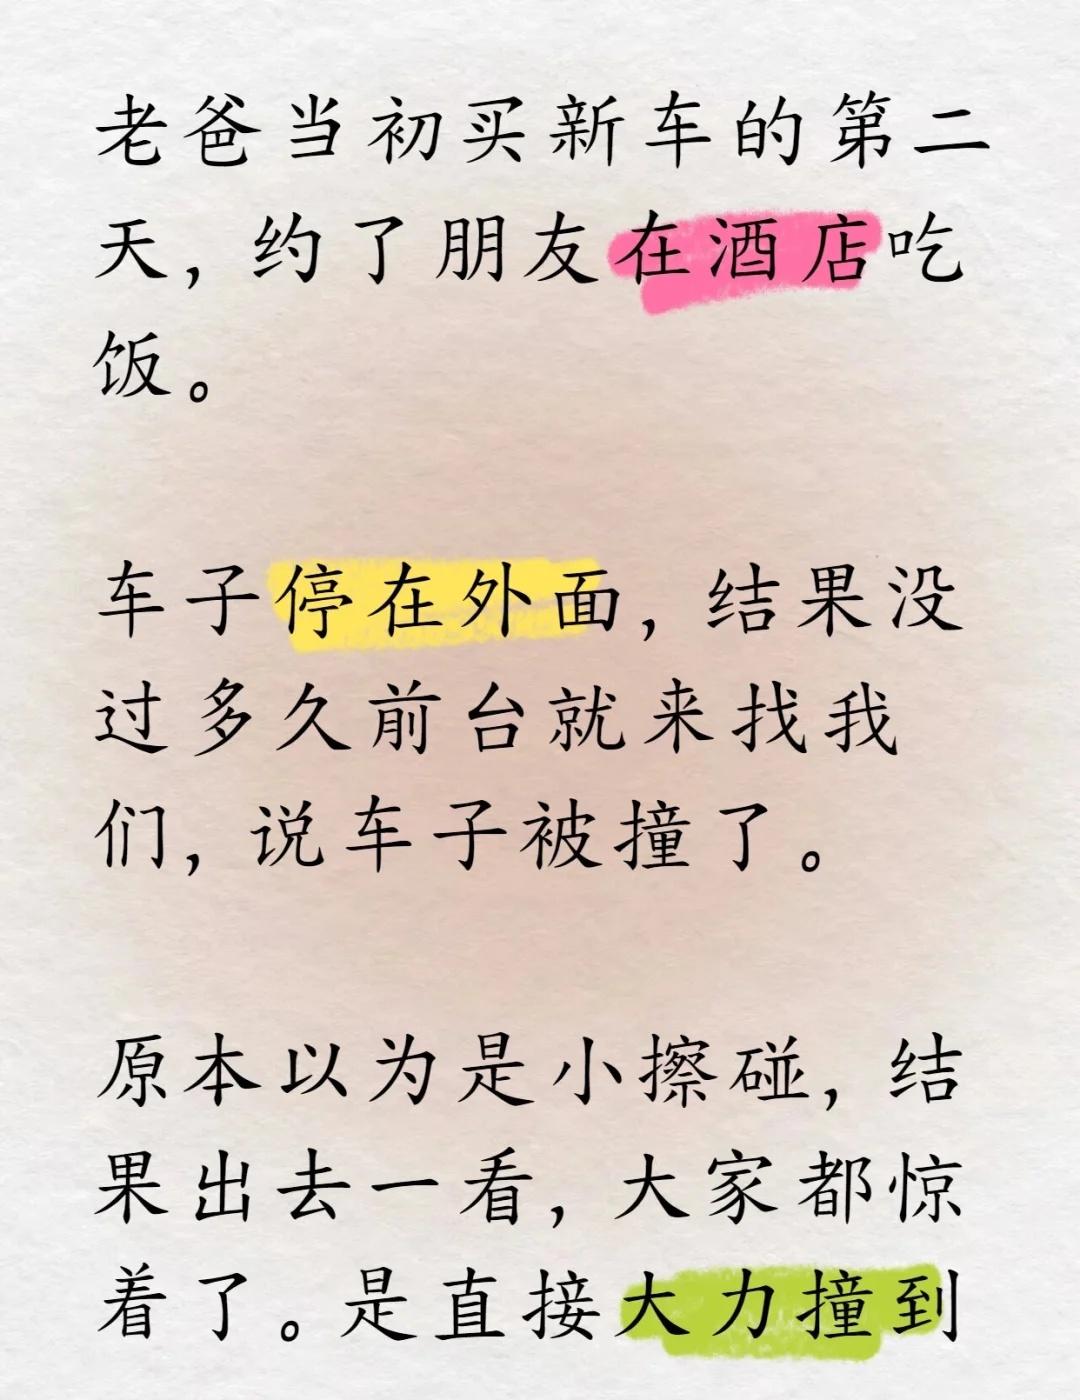 老爸当初买新车的第二
天，约了朋友在酒店吃
饭。
车子停在外面，结果没
过多久前台就来找我
们，说车子被撞了。
原本以为是小擦碰，结
果出去一看，大家都惊
着了。是直接大力撞到